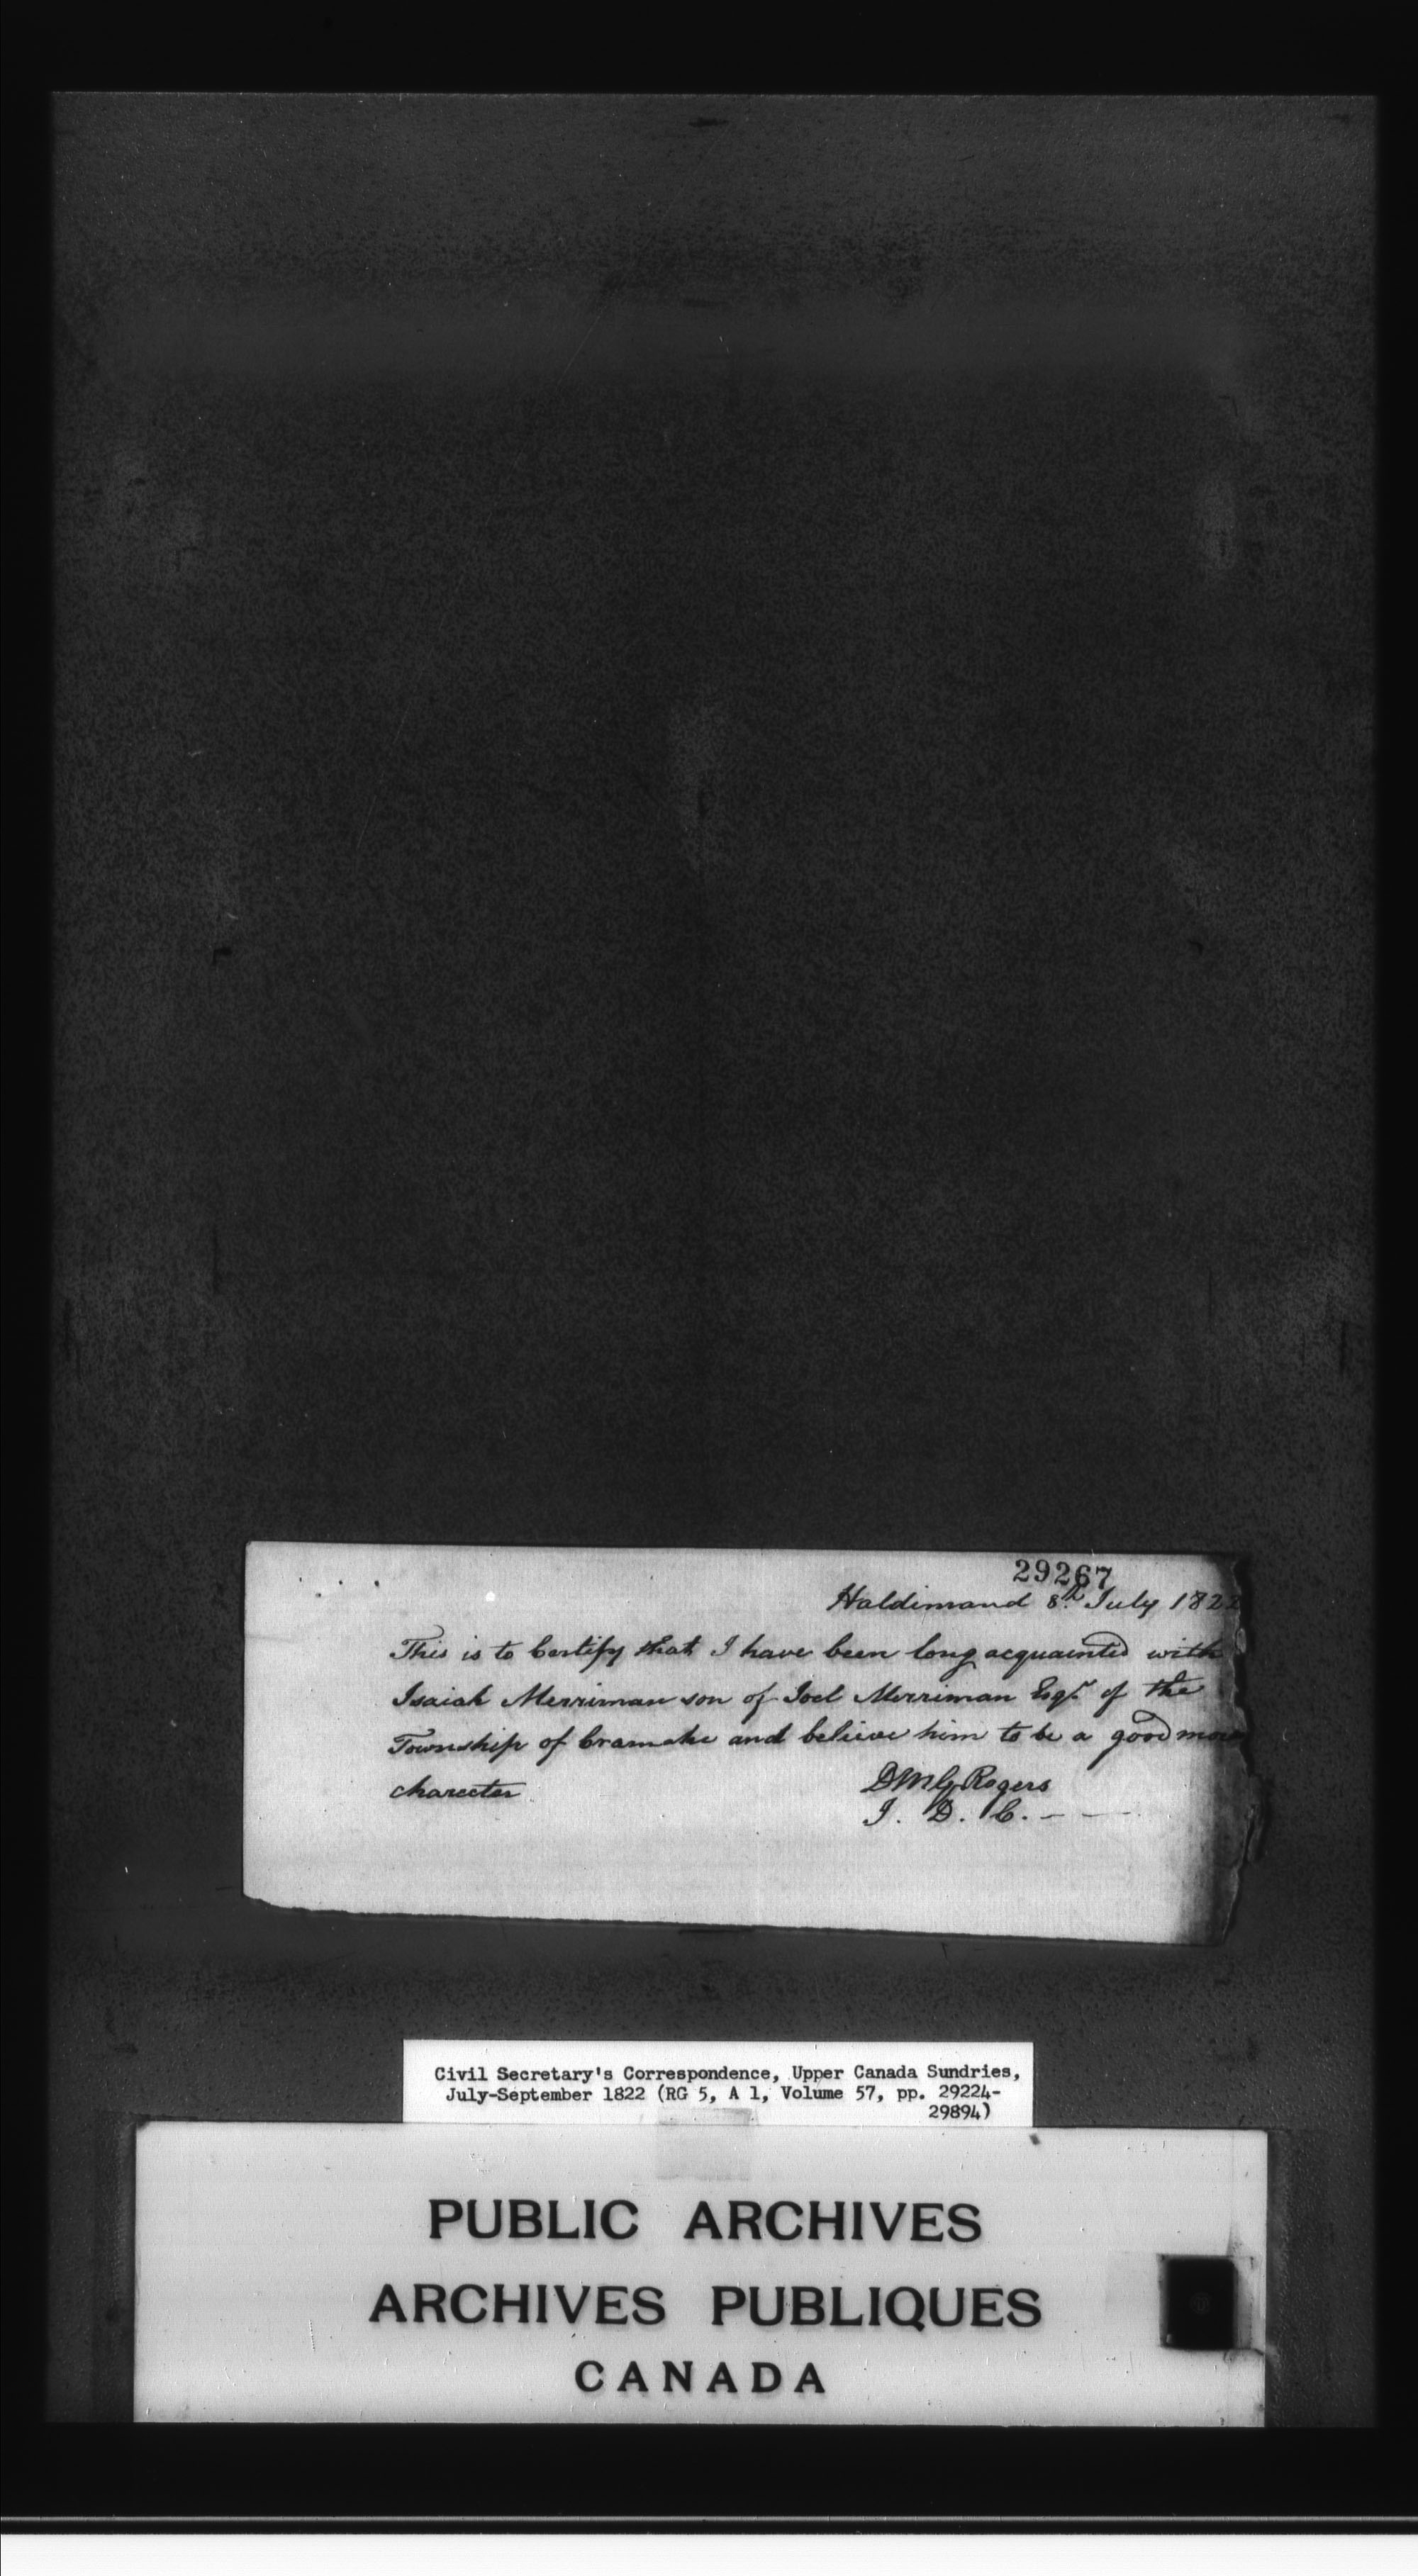 29267
Haldimand 8th July 1822
This is to Certify that I have been long acquainted with
Isaiah Merriman son of Joel Merriman Esqr. of the
Township of Cramahe and believe him to be a good
charecter
DMG Rogers
J. D. C. - -
Civil Secretary's Correspondence, Upper Canada Sundries,
July-September 1822 (RG 5, A 1, Volume 57, pp. 29224-
29894)
PUBLIC ARCHIVES
ARCHIVES PUBLIQUES
CANADA